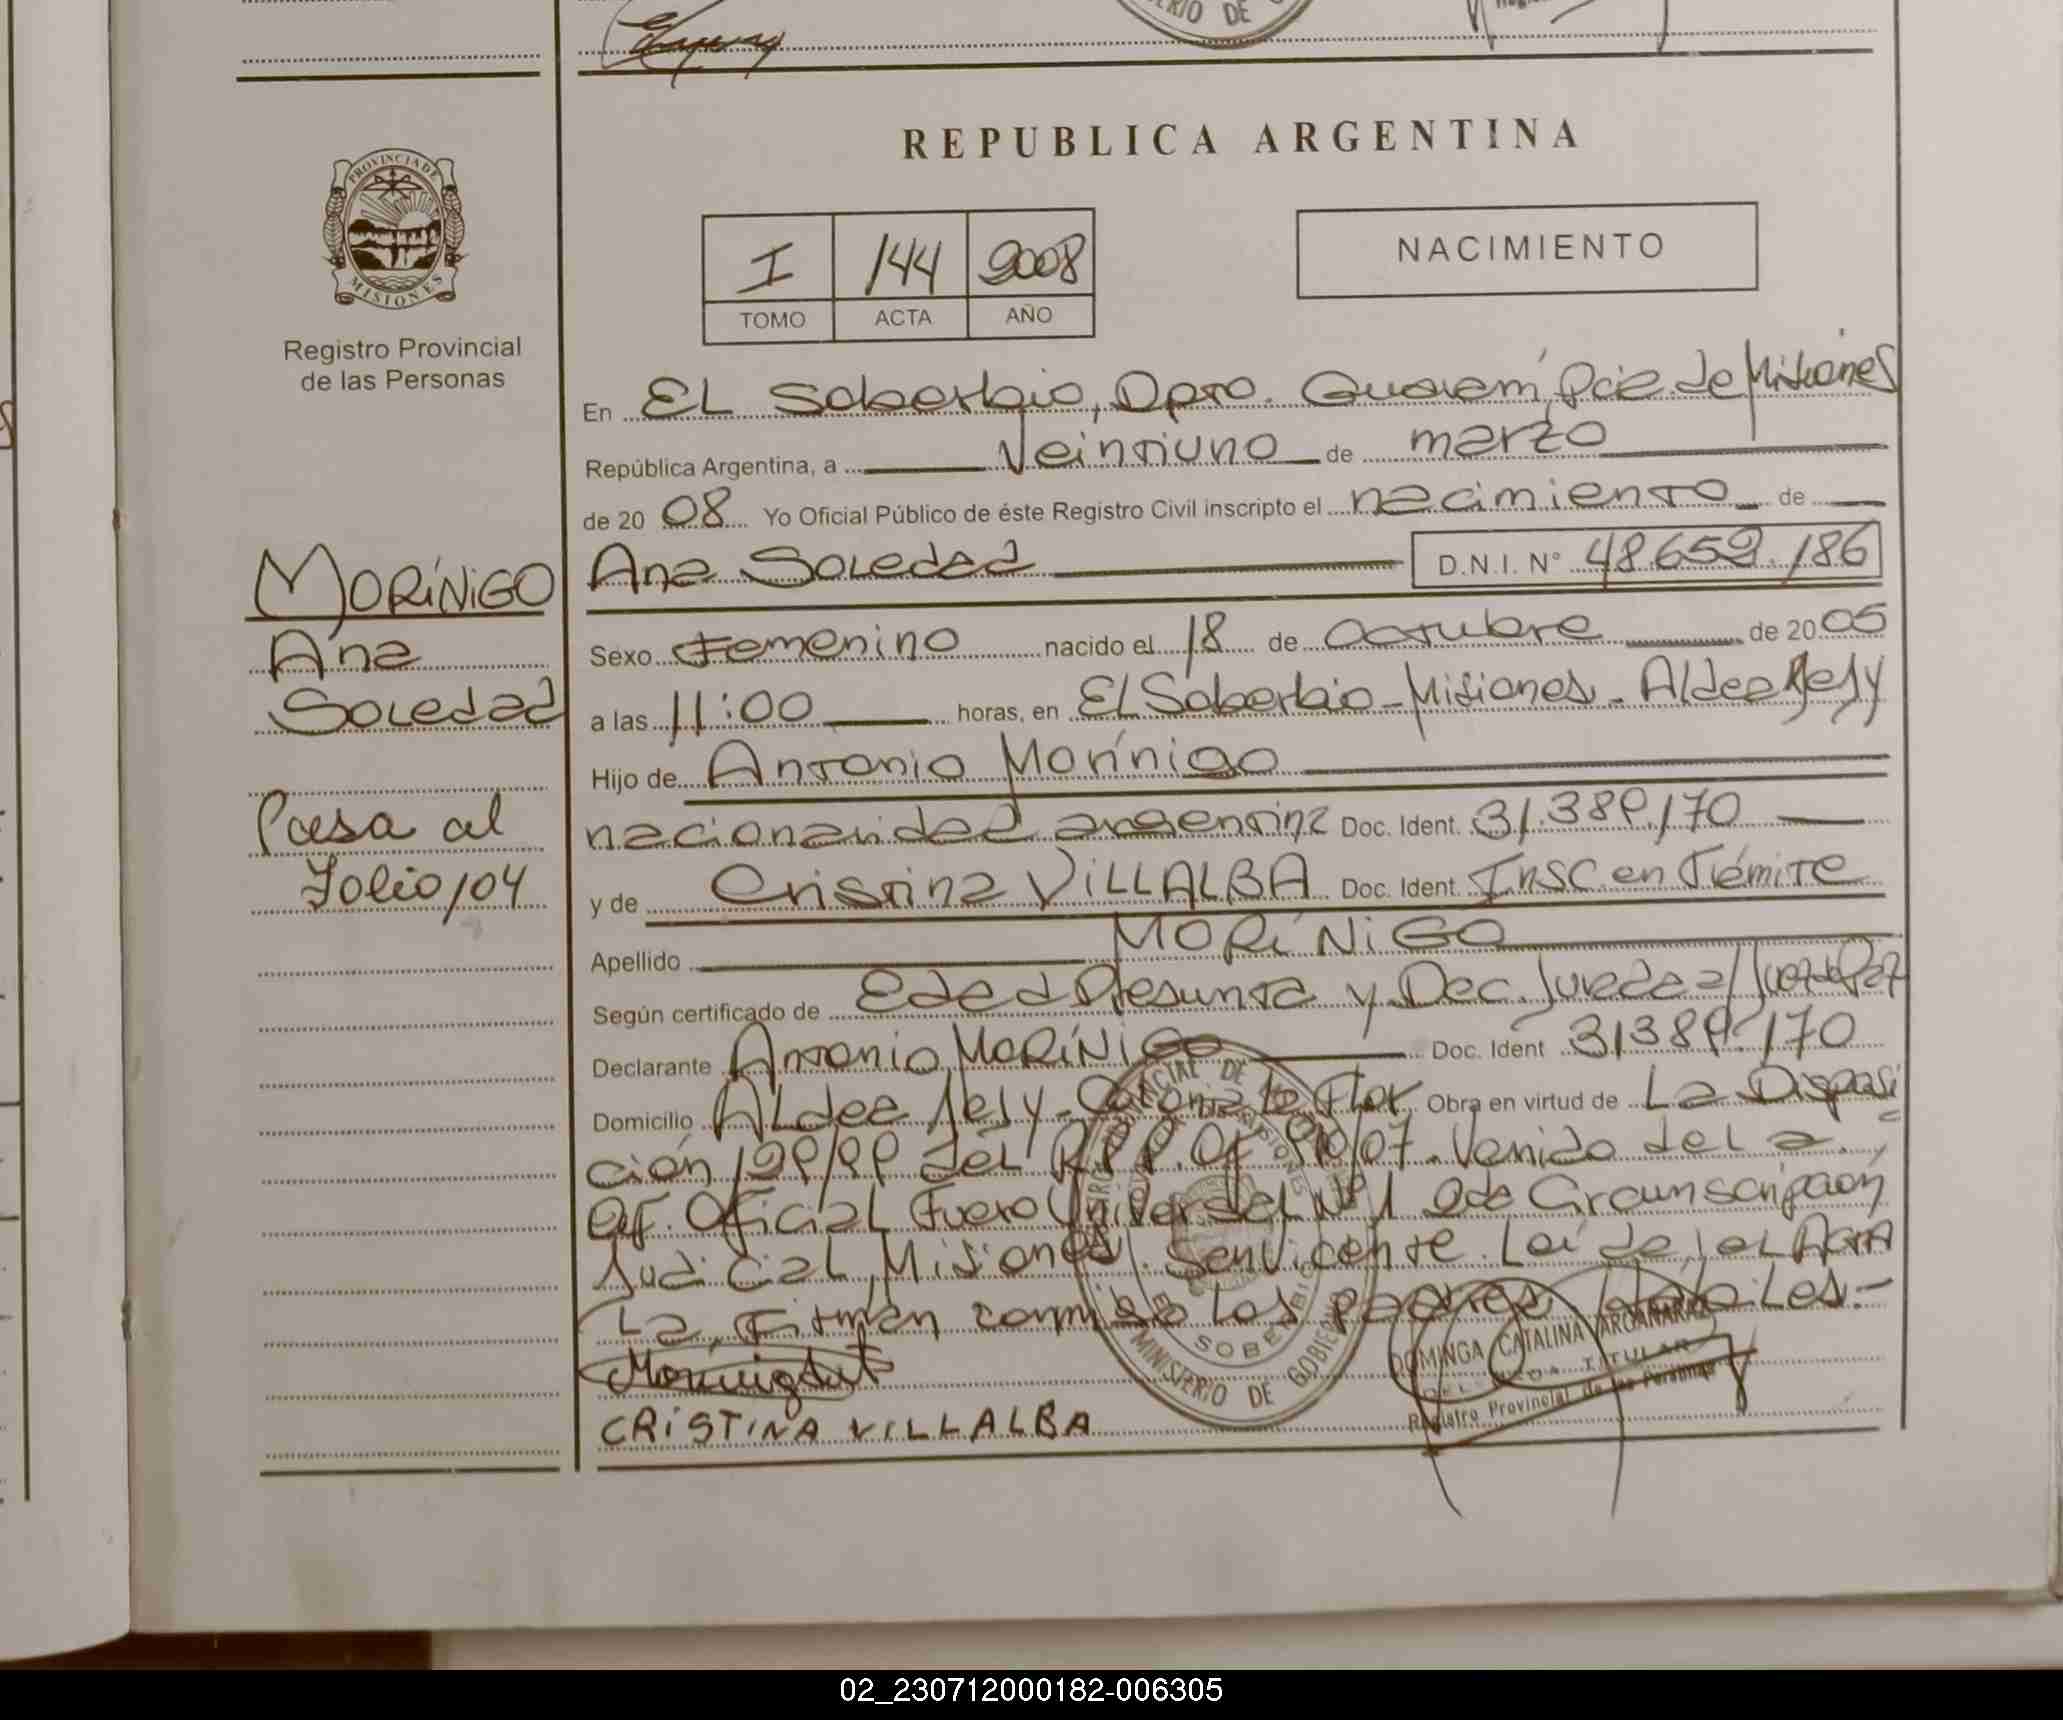 REPUBLICA ARGENTINA
PROVINCIA DE
MISIONES
Registro Provincial
de las Personas
I 144 2008
TOMO ACTA AÑO
NACIMIENTO
En EL Soberbio, Dpto. Guaraní, Pcia. de Misiones
República Argentina, a Veintiuno de marzo
de 2008 Yo Oficial Público de éste Registro Civil inscripto el nacimiento de
Ana Soledad D.N.I. N° 48.659.186
MORÍNIGO
Ana
Soledad
Pasa al
Folio 104
Sexo Femenino nacido el 18 de Octubre de 2005
a las 11:00 horas, en El Soberbio - Misiones - Aldea Jejy
Hijo de Antonio Morínigo
nacionalidad argentina Doc. Ident. 31.389.170
y de Cristina VILLALBA Doc. Ident. Insc en Trámite
Apellido MORÍNIGO
Según certificado de Edad Presunta y Dec. Jurada
Declarante Antonio MORÍNIGO Doc. Ident 31389.170
Domicilio Aldea Jejy - Colonia La Flor Obra en virtud de La Disposi
ción 199/99 del R.P.P. Of 910/07. Venido del
Oficial Fuero Universal Nº 1 2da Circunscripción
Judicial, Misiones. San Vicente. Leída el Acta
La, Firman conmigo los padres
CRISTINA VILLALBA
MINISTERIO DE GOBIERNO
SOBERBIO
DOMINGA CATALINA ARGAÑARAZ
TITULAR
Registro Provincial de las Personas
02_230712000182-006305